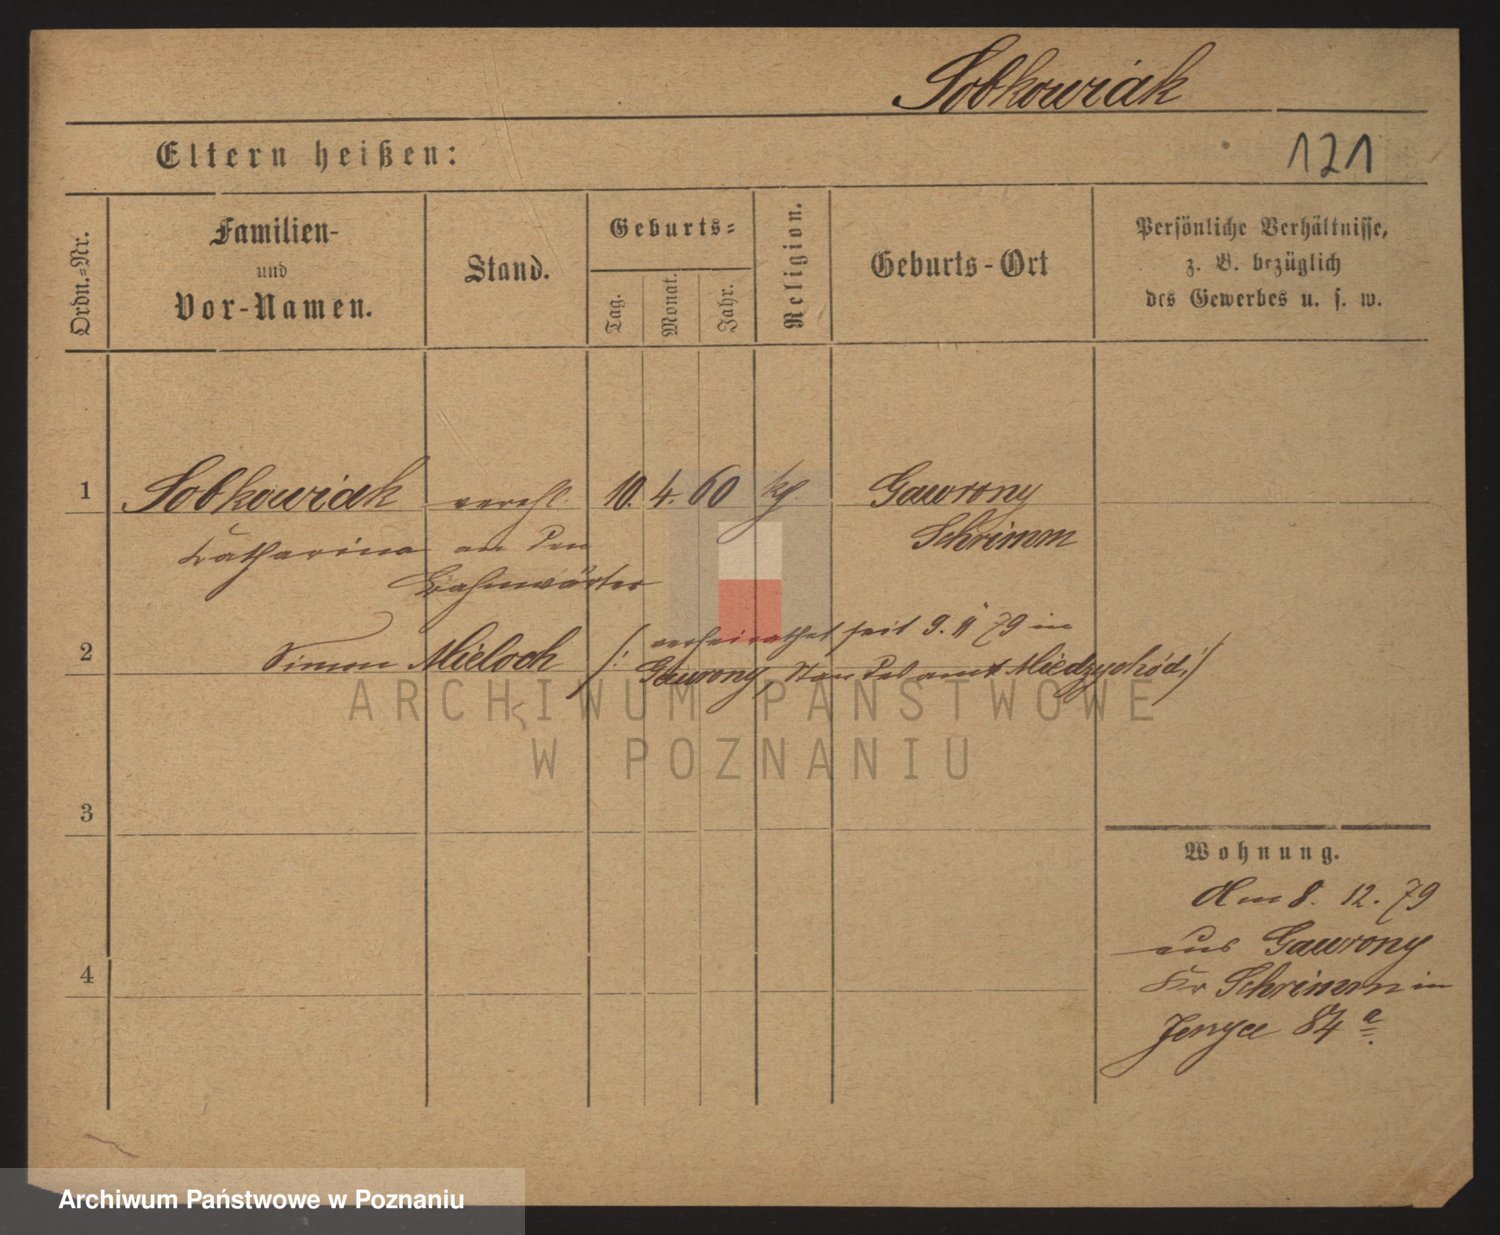 Sobkowiak
Eltern heißen:
121
Ordn.=Nr.
Familien-
und
Vor-Namen.
Stand.
Geburts=
Tag.
Monat.
Jahr.
Religion.
Geburts-Ort
Persönliche Verhältnisse,
z. B. bezüglich
des Gewerbes u. s. w.
1 Sobkowiak verehl. 10. 4. 60 kg Gawrony
Catharina an den Schrimm
Bahnwärter
2 Simon Mieloch /: verheirathet seit 9. 11 79 in
Gawrony, Standesamt Miedzychód :/
ARCHIWUM PAŃSTWOWE
W POZNANIU
3
Wohnung.
Am 8. 12. 79
aus Gawrony
4
Kr Schrimm in
Jersyce 84 a
Archiwum Państwowe w Poznaniu